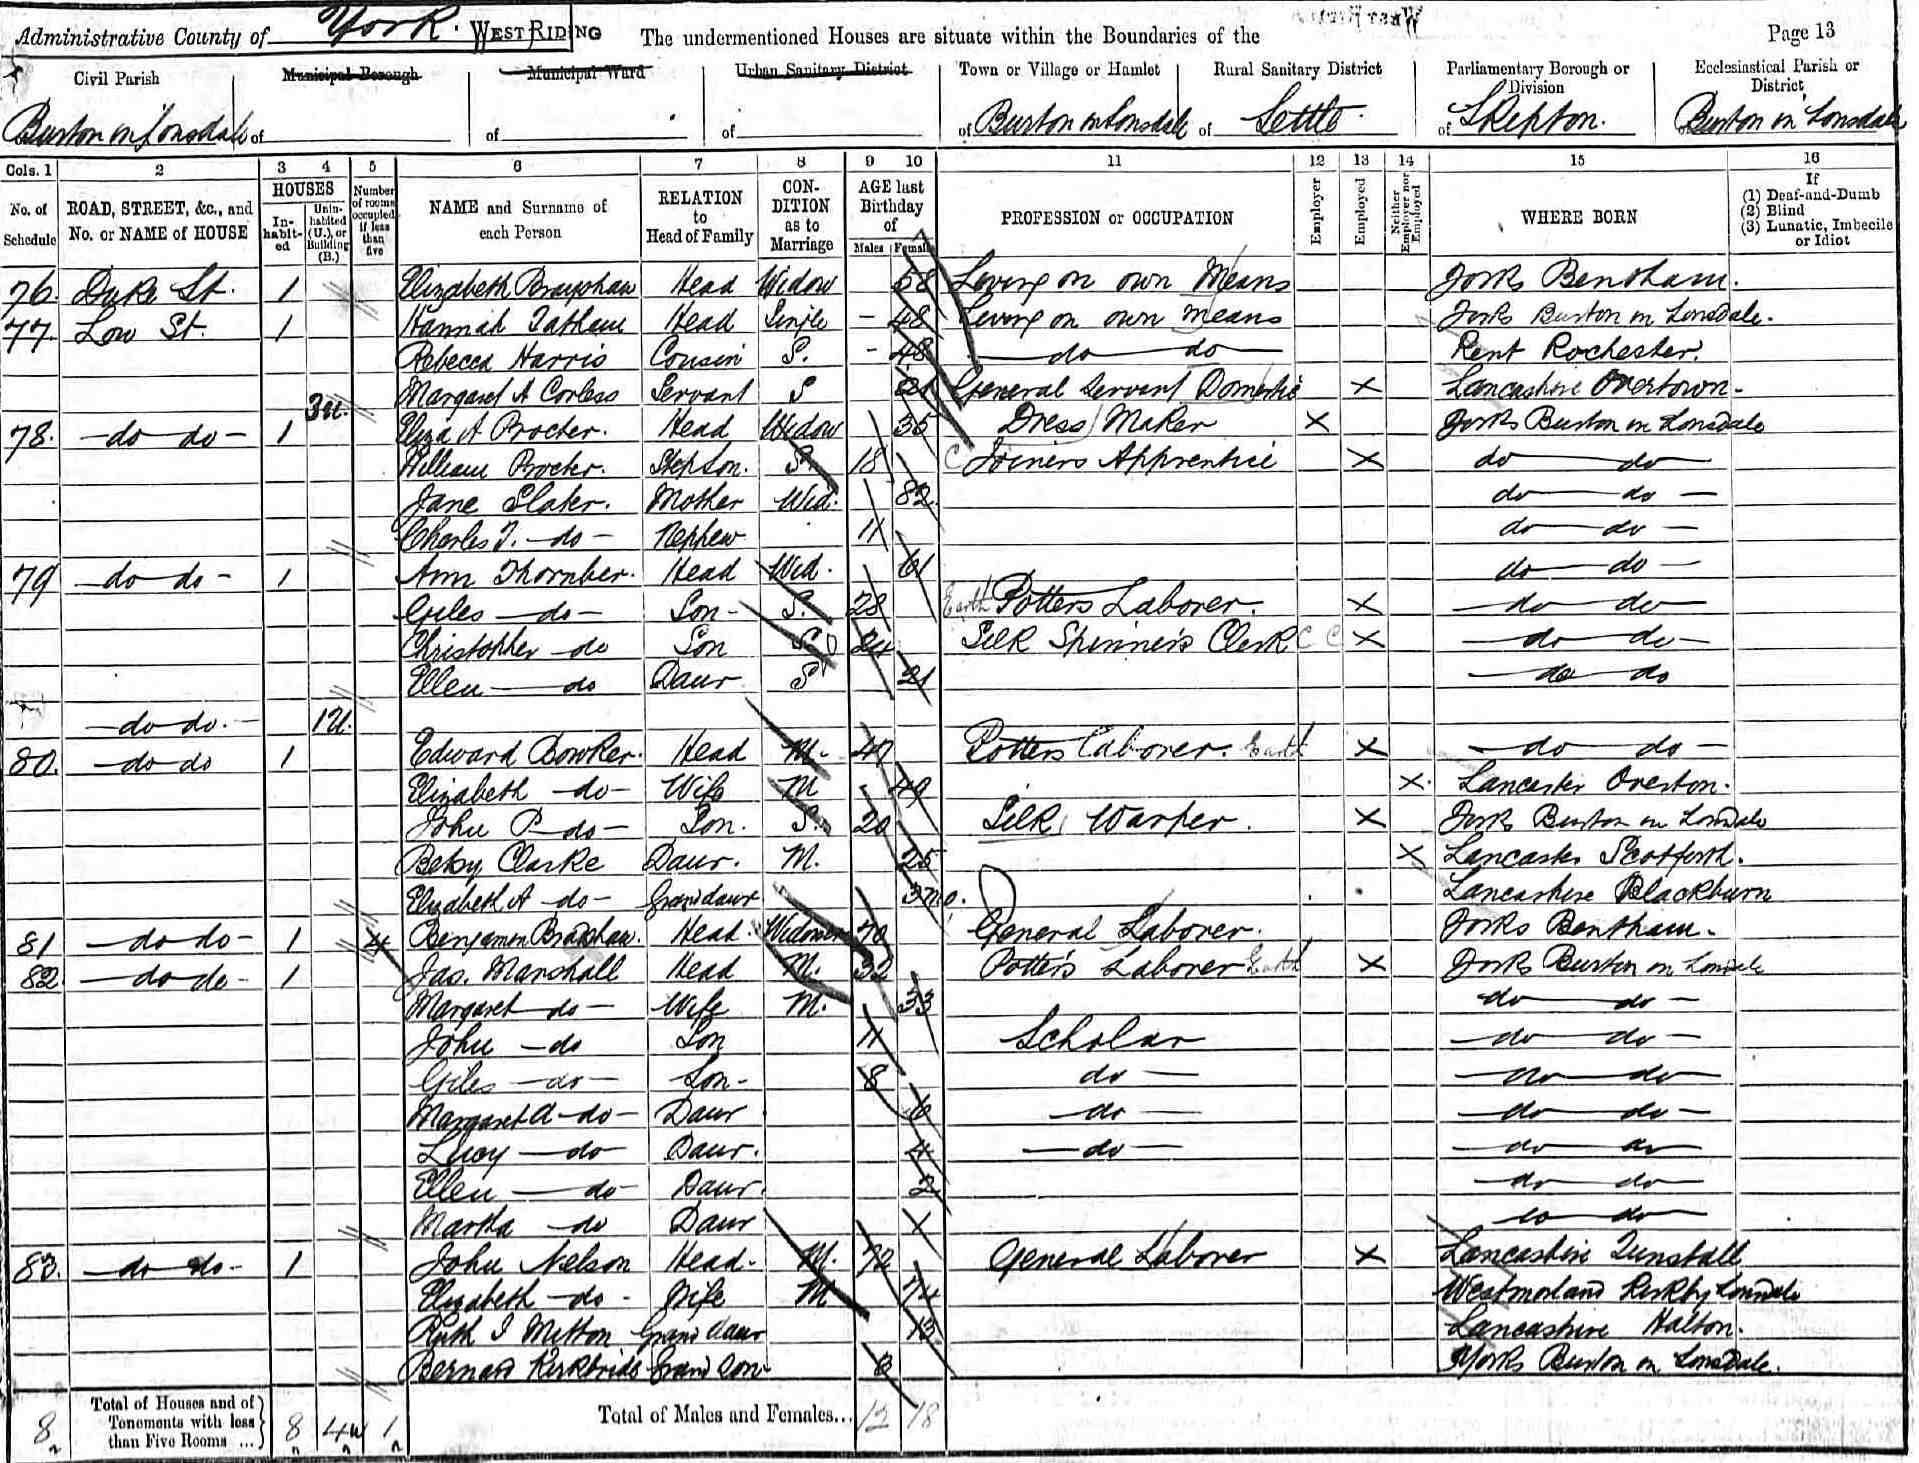 Administrative County of York. WEST RIDING The undermentioned Houses are situate within the Boundaries of the Page 13
Civil Parish Municipal Borough Municipal Ward Urban Sanitary District Town or Village or Hamlet Rural Sanitary District Parliamentary Borough or Division Ecclesiastical Parish or District
Burton in Lonsdale of of of of Burton in Lonsdale of Settle of Skipton. of Burton in Lonsdale
Cols. 1 2 3 4 5 6 7 8 9 10 11 12 13 14 15 16
No. of Schedule ROAD, STREET, &c., and No. or NAME of HOUSE HOUSES Inhabited Uninhabited (U.), or Building (B.) Number of rooms occupied if less than five NAME and Surname of each Person RELATION to Head of Family CONDITION as to Marriage AGE last Birthday of Males Females PROFESSION or OCCUPATION Employer Employed Neither Employer nor Employed WHERE BORN If (1) Deaf-and-Dumb (2) Blind (3) Lunatic, Imbecile or Idiot
76. Duke St. 1 Elizabeth Head Widow 58 Living on own Means Yorks Bentham.
77. Low St. 1 Hannah Tatham Head Single - 48 Living on own means Yorks Burton in Lonsdale.
Rebecca Harris Cousin S. - 48 do do Kent Rochester.
Margaret A Corless Servant S 21 General Servant Domestic X Lancashire Overtown -
3u.
78. - do do - 1 Eliza A Procter. Head Widow 35 Dress Maker X Yorks Burton in Lonsdale
William Procter. Stepson. S. 18 Joiners Apprentice X do do
Jane Slater. Mother Wid. 82 do do -
Charles T. - do - Nephew 11 do do -
79 - do do - 1 Ann Thornber. Head Wid. 61 do do -
Giles - do - Son - S. 28 Earth Potters Laborer. X do do
Christopher - do Son S 24 Silk Spinners Clerk C C X do do -
Ellen - do Daur S 21 do do
- do do. - 1U.
80. - do do 1 Edward Bowker. Head M. 47 Potters Laborer. Earth X do do -
Elizabeth - do - Wife M 49 X. Lancaster Overton.
John P - do - Son. S. 20 Silk Warper. X Yorks Burton in Lonsdale
Betsy Clarke Daur. M. 25 X Lancaster Scotforth.
Elizabeth A - do - Grandaur 3mo. Lancashire Blackburn
81 - do do - 1 4 Benjamin Bradshaw. Head Widower 70 General Laborer. Yorks Bentham.
82 - do do - 1 Jas. Marshall Head M. 32 Potters Laborer Earth X Yorks Burton in Lonsdale
Margaret - do - Wife M. 33 do do -
John - do Son 11 Scholar do do -
Giles - do - Son - 8 do - do do
Margaret A - do - Daur 6 - do - do do -
Lucy - do Daur. 4 - do - do do
Ellen - do Daur. 2 do do
Martha - do Daur do do
83. - do do - 1 John Nelson Head. M. 72 General Laborer X Lancashire Tunstall
Elizabeth - do - Wife M 74 Westmorland Kirkby Lonsdale
Ruth I Mitton Grand Daur 13 Lancashire Halton.
Bernard Kirkbride Grand Son Yorks Burton in Lonsdale.
8 Total of Houses and of Tenements with less than Five Rooms ... 8 4u 1 Total of Males and Females... 12 18